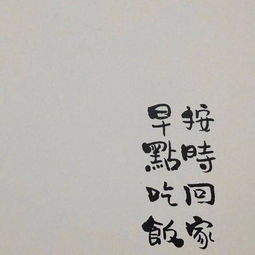 按時回家
早點吃飯